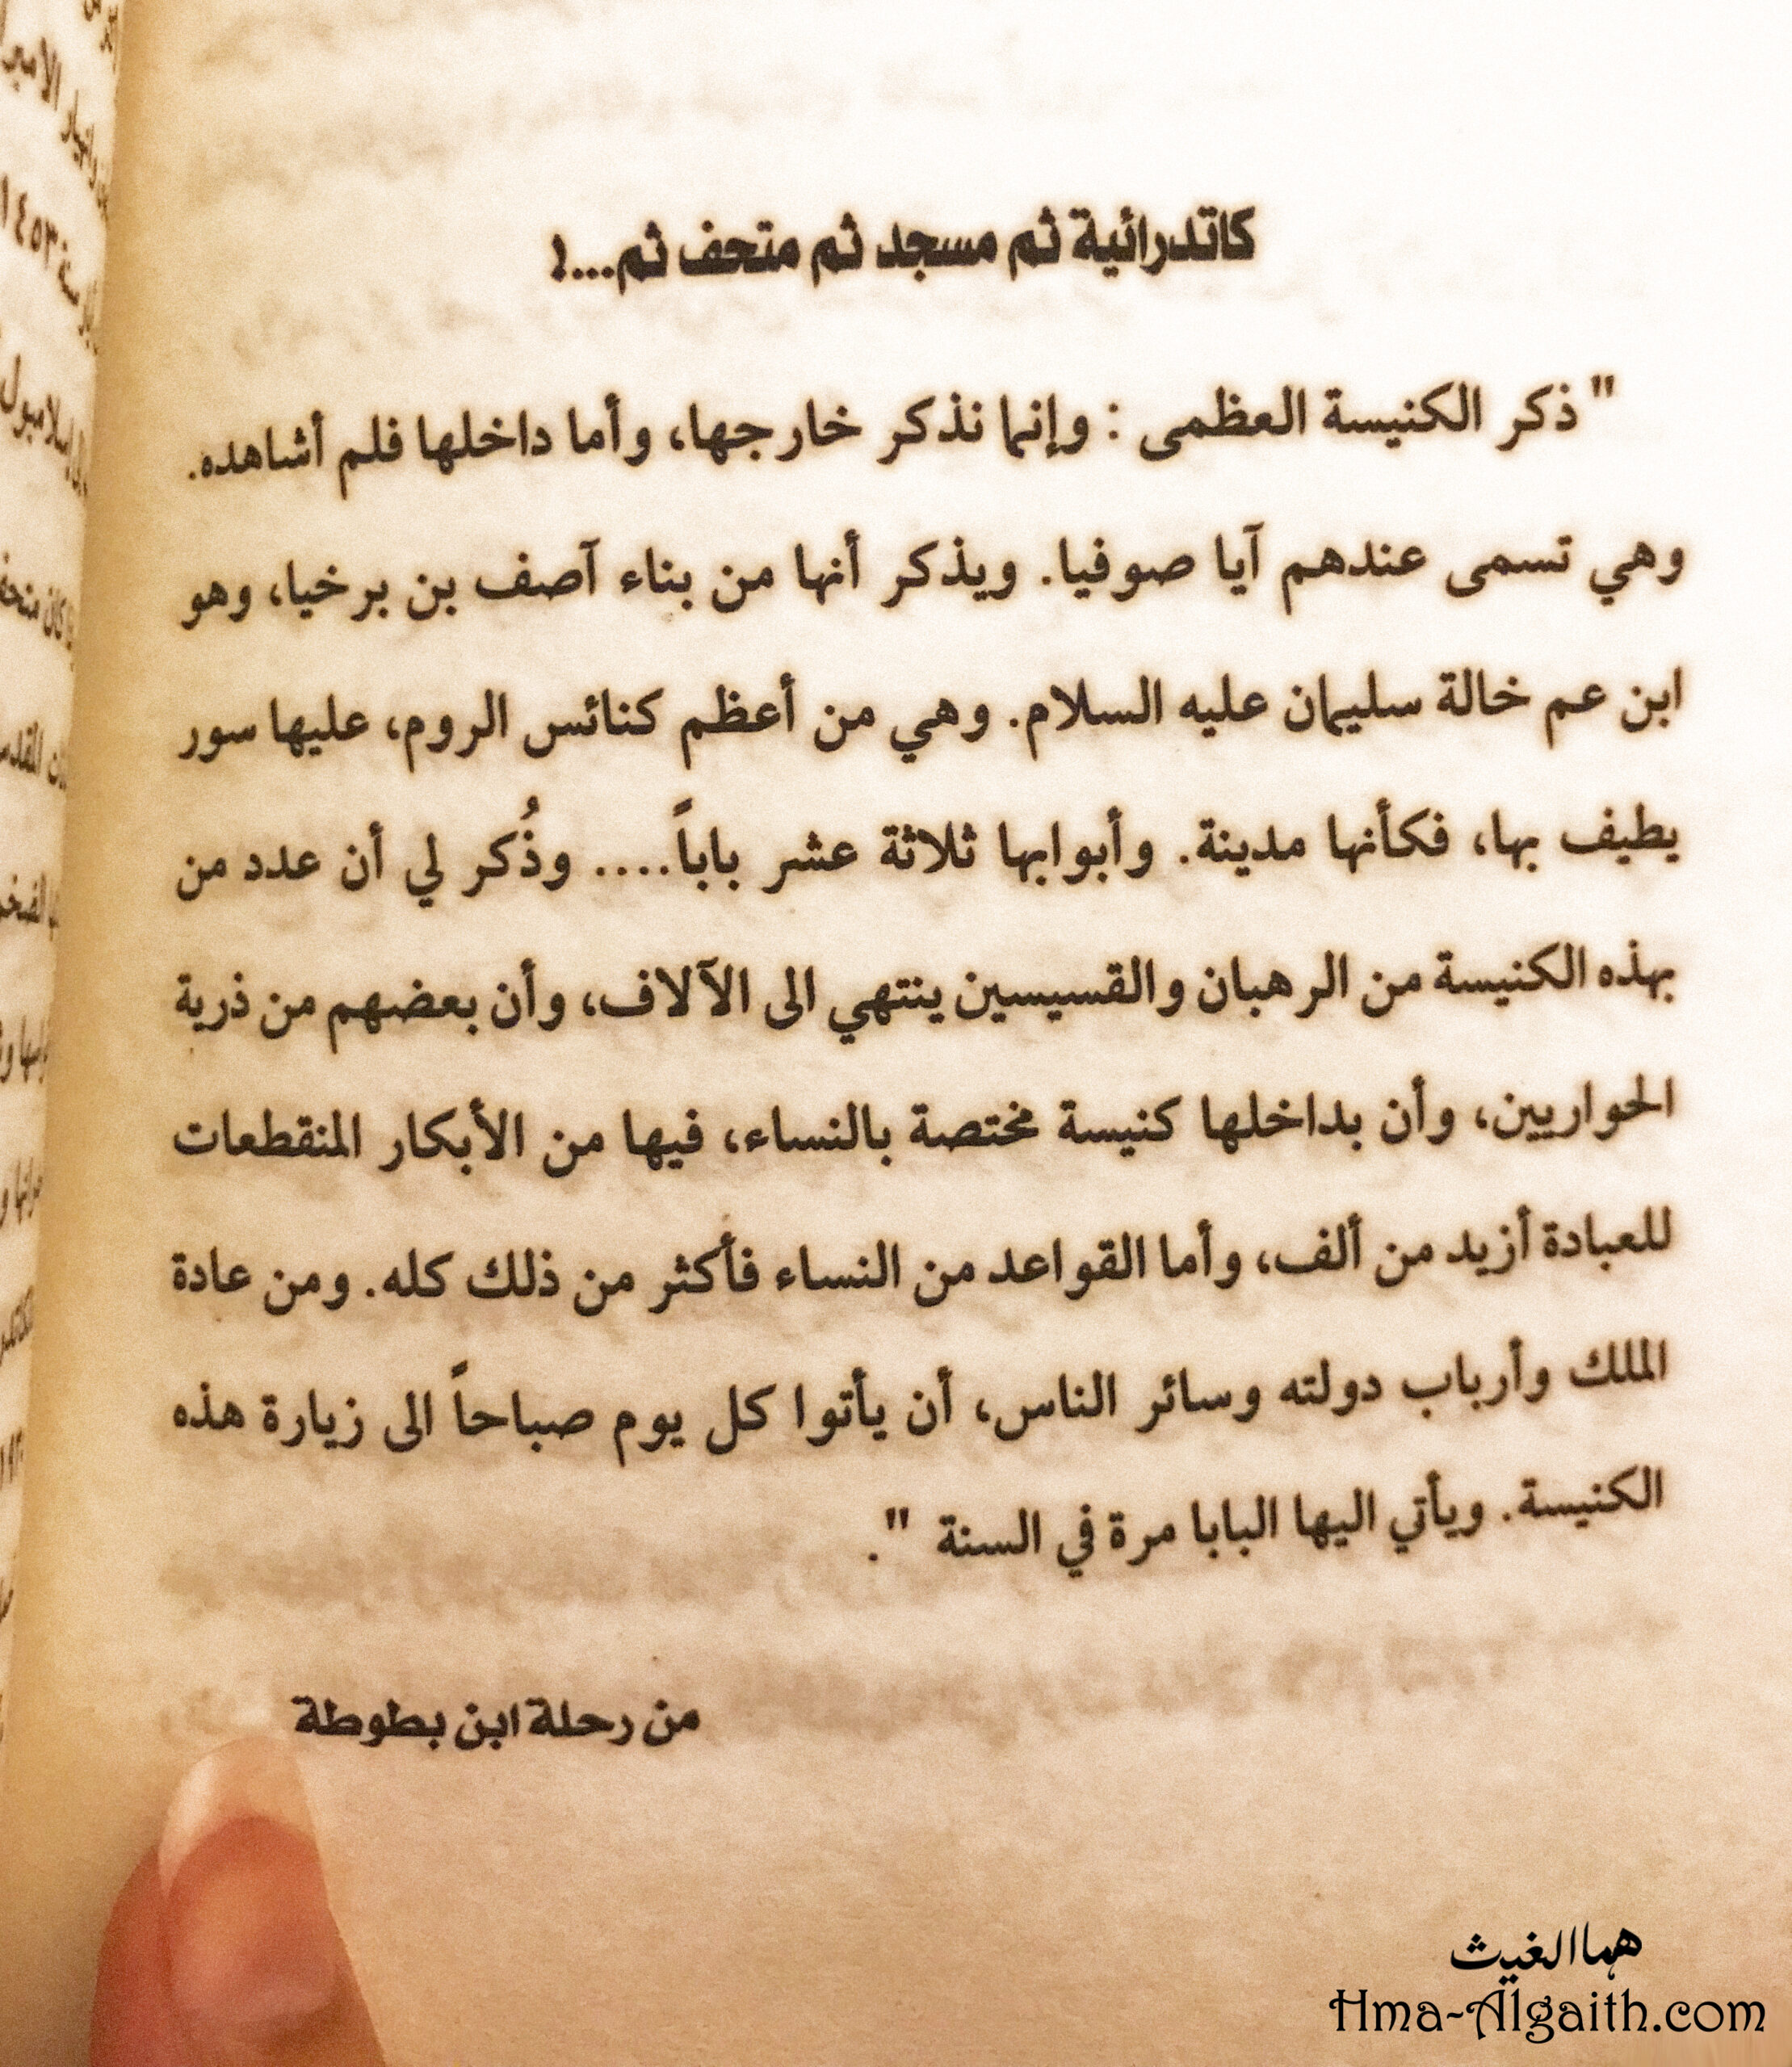 كاتدرائية ثم مسجد ثم متحف ثم...!
" ذكر الكنيسة العظمى : وإنما نذكر خارجها، وأما داخلها فلم أشاهده.
وهي تسمى عندهم آيا صوفيا. ويذكر أنها من بناء آصف بن برخيا، وهو
ابن عم خالة سليمان عليه السلام. وهي من أعظم كنائس الروم، عليها سور
يطيف بها، فكأنها مدينة. وأبوابها ثلاثة عشر باباً.... وذُكر لي أن عدد من
بهذه الكنيسة من الرهبان والقسيسين ينتهي الى الآلاف، وأن بعضهم من ذرية
الحواريين، وأن بداخلها كنيسة مختصة بالنساء، فيها من الأبكار المنقطعات
للعبادة أزيد من ألف، وأما القواعد من النساء فأكثر من ذلك كله. ومن عادة
الملك وأرباب دولته وسائر الناس، أن يأتوا كل يوم صباحاً الى زيارة هذه
الكنيسة. ويأتي اليها البابا مرة في السنة ".
من رحلة ابن بطوطة
هما الغيث
Hma-Algaith.com